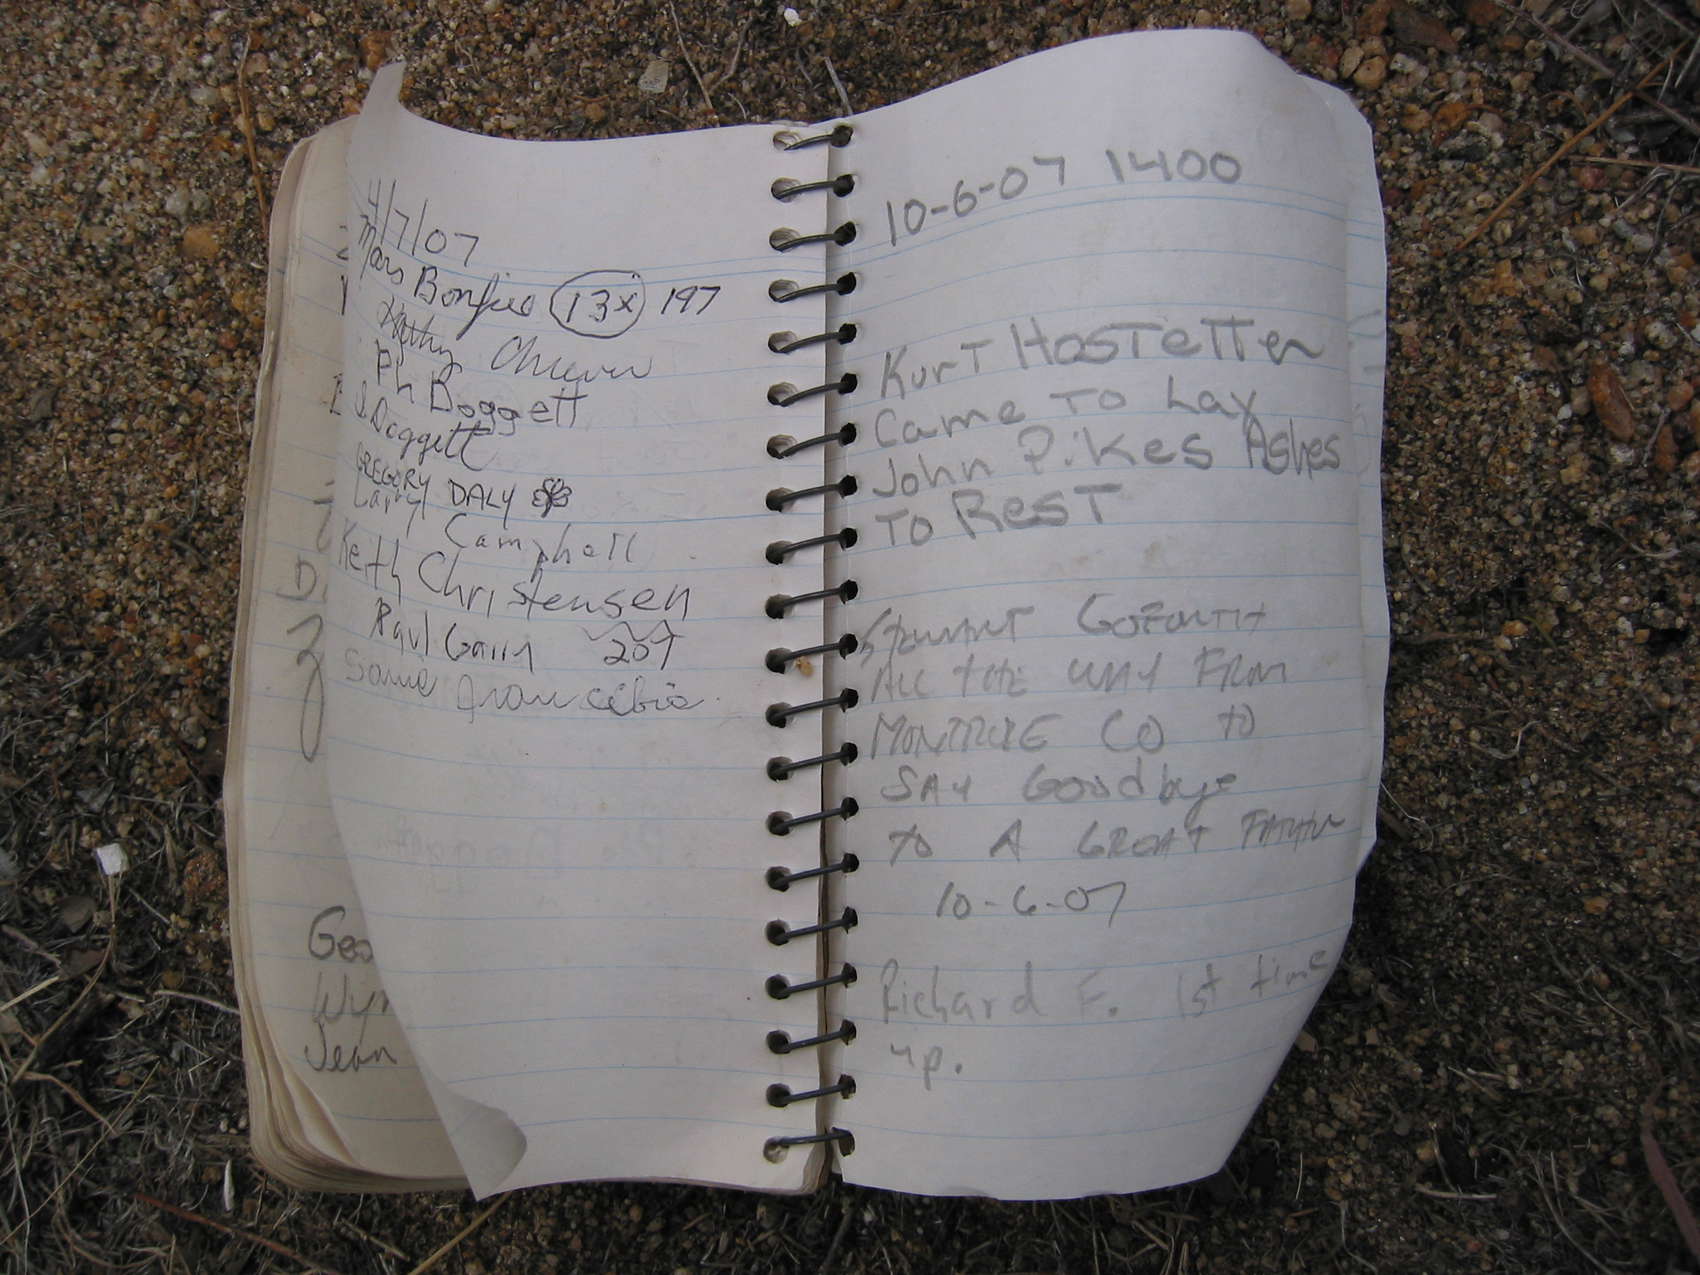 4/7/07
Mars Bonfire 13x 197
Kathy
Ph Doggett
J. Doggett
GREGORY DALY
Larry Campbell
Keith Christensen
Paul Garry 207
Geo
Wyn
Jean
10-6-07 1400
Kurt HosTeTTer
Came To Lay
John Pikes Ashes
To ResT
STEWART GOFORTH
ALL THE WAY FROM
MONTROSE CO to
SAY Goodbye
to A GREAT FATHER
10-6-07
Richard F. 1st time
up.